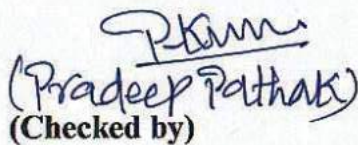 P.Kum
(Pradeep Pathak)
(Checked by)